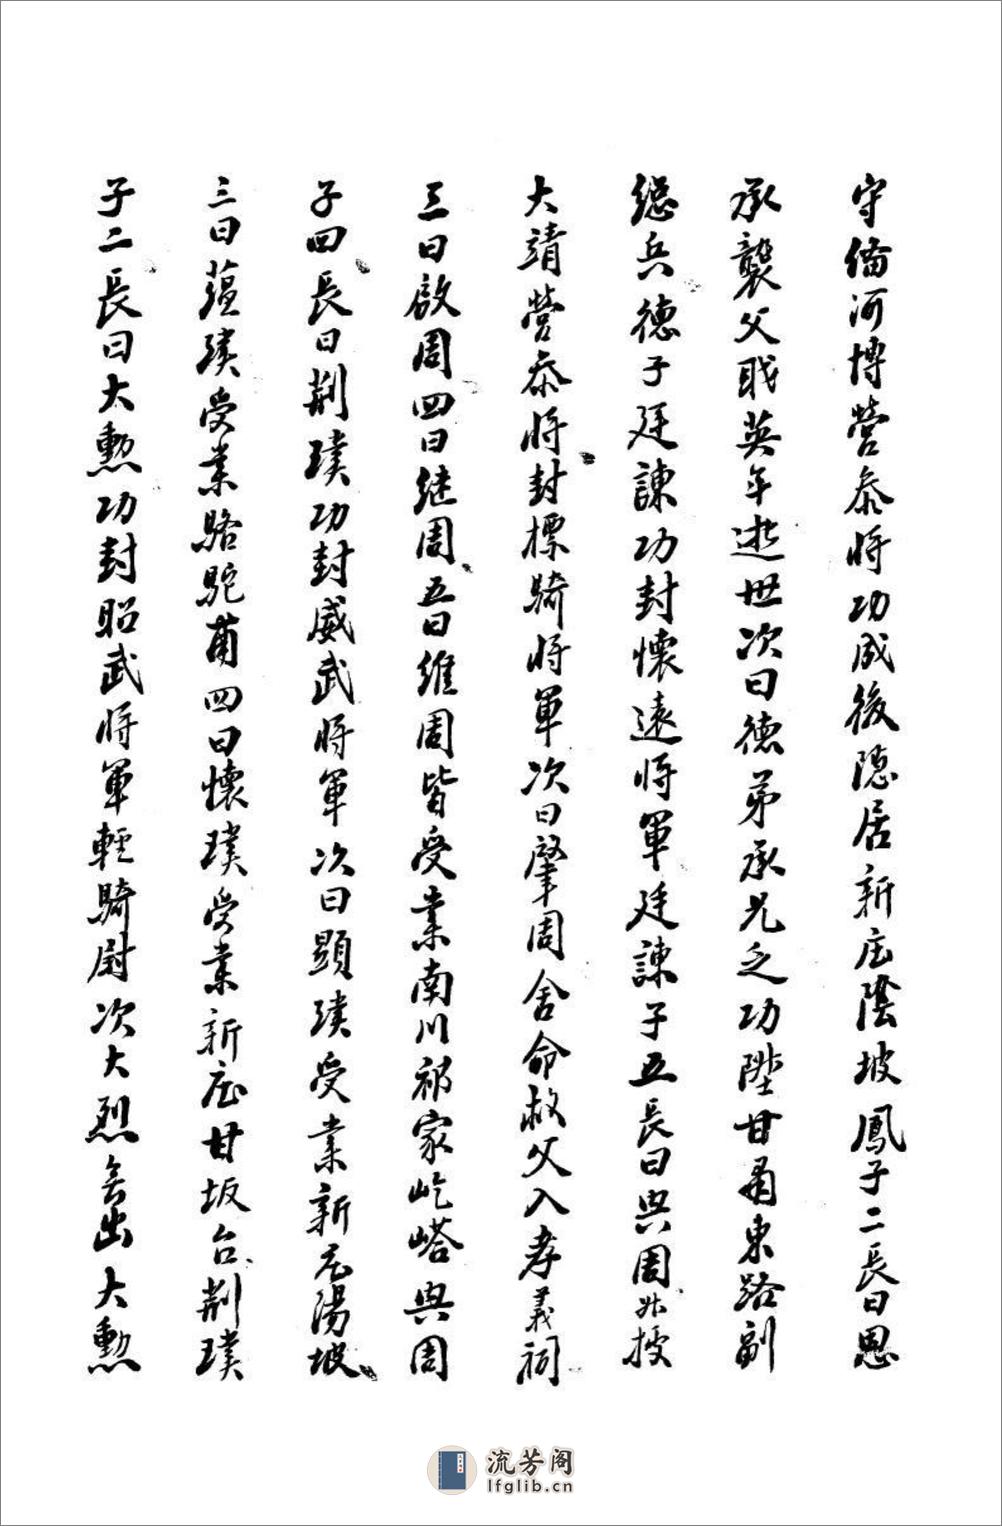 守备河博营叅将功成後隐居新庄陰坡鳳子二長曰恩
承襲父职英年逝世次曰德弟承兄之功陞甘肅東路副
總兵德子廷諫功封懷遠將軍廷諫子五長曰興周授
大靖营叅将封標騎将軍次曰肇周舍命救父入孝義祠
三曰啟周四曰继周五曰維周皆受業南川祁家屹嵱興周
子四長曰荆璞功封威武將軍次曰顯璞受業新庄陽坡
三曰蕴璞受業駱駝甫四曰懷璞受業新庄甘坂台荆璞
子二長曰大勲功封昭武將軍輕騎尉次大烈出大勲
流芳阁
lfglib.cn